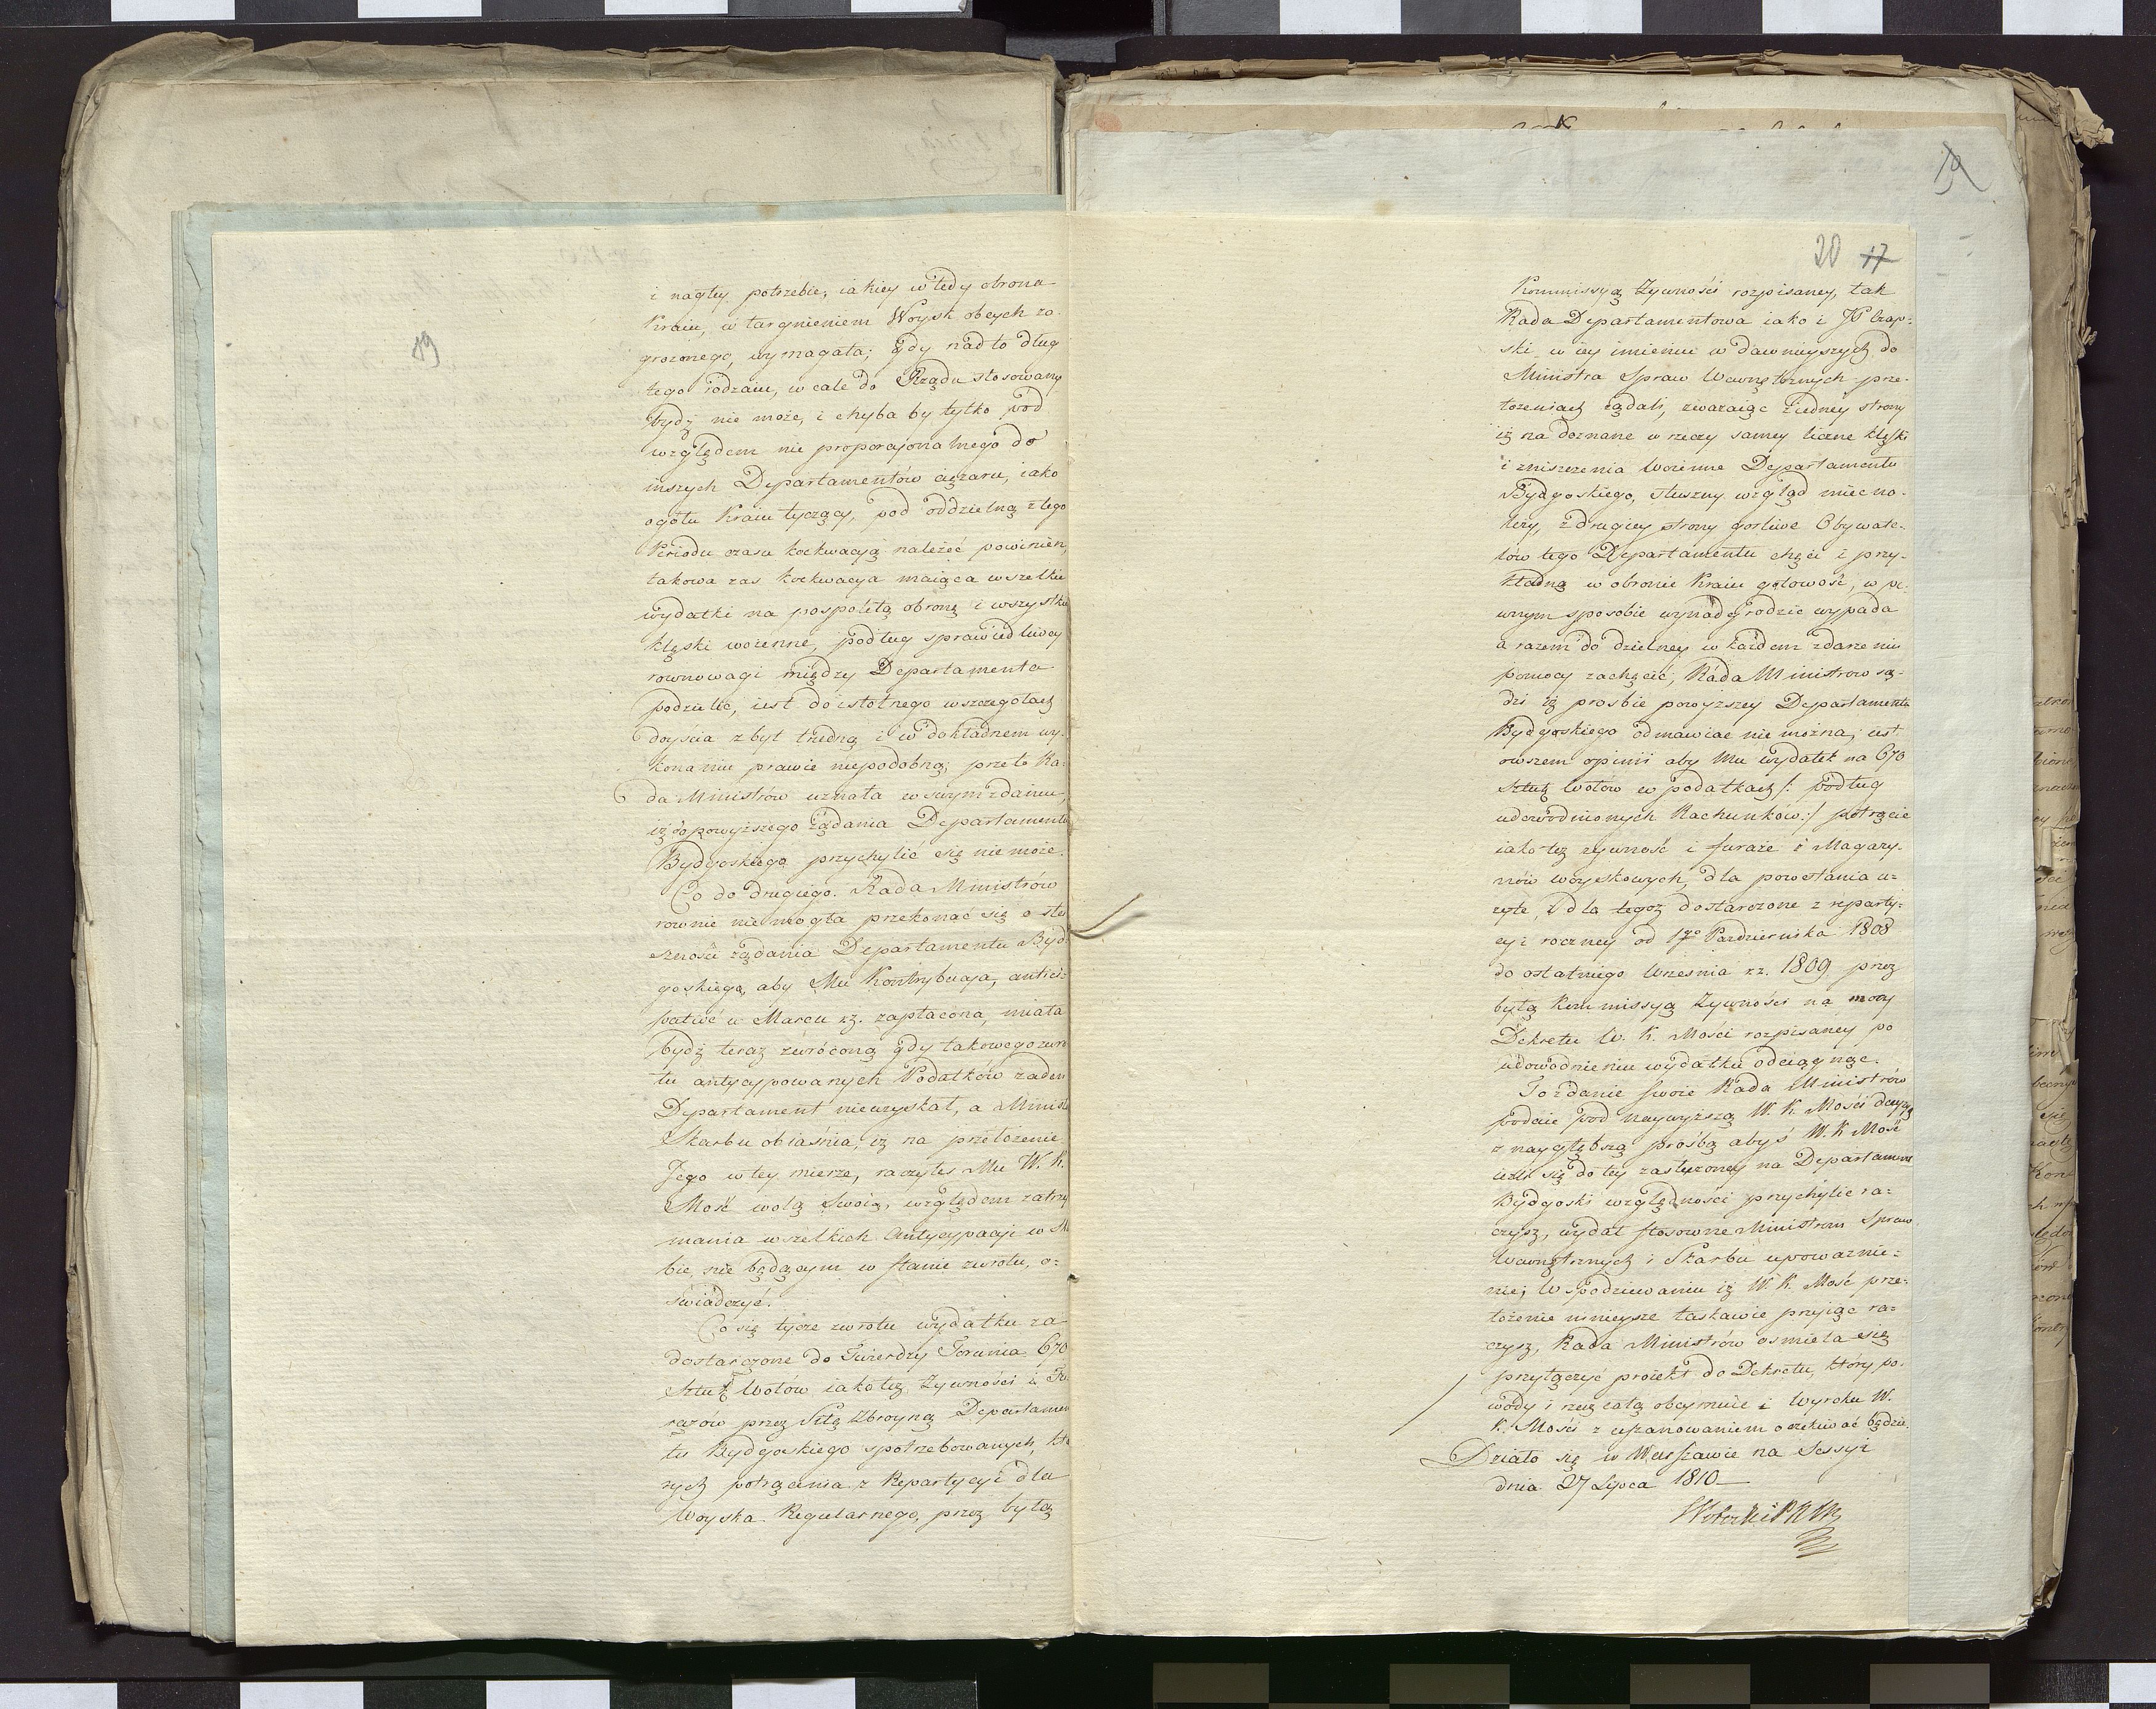 19
i nagłey potrzebie, iakiey wtedy obrona
Kraiu, wtargnieniem Woysk obcych za-
grożonego, wymagała; gdy nadto dług
tego rodzaiu, wcale do Rządu stosowany
bydź nie może, i chyba by tylko pod
względem nie proporcjonalnego do
inszych Departamentów ciężaru, iako
ogółu Kraiu tyczący, pod oddzielną z tego
Periodu czasu koekwacyą należeć powinien,
takowa zas koekwacya maiąca wszelkie
wydatki na pospolitą obronę i wszystkie
klęski woienne, podług sprawiedliwey
rownowagi między Departamenta
podzielić, iest do istotnego w szczegołach
doyscia zbyt trudną i w dokładnem wy-
konaniu prawie niepodobną; przeto Ra-
da Ministrów uznała w swym zdaniu,
iż do powyższego żądania Departamentu
Bydgoskiego przychylić się nie może.
Co do drugiego. Rada Ministrów
rownie nie mogła przekonać się o słu
szności żądania Departamentu Byd-
goskiego, aby Mu Kontrybucya, antici-
pative w Marcu rz. zapłacona, miała
bydź teraz zwróconą gdy takowego zwro
tu antycypowanych Podatków żaden
Departament nieuzyskał, a Minist
Skarbu obiaśnia, iż na przełożenie
Jego w tey mierze, raczyłeś Mu W. K.
Mość wolą Swoią, względem zatrzy
mania wszelkich Antycypacyi w Skar
bie, nie będącym w stanie zwrotu, o-
świadczyć.
Co się tycze zwrotu wydatku za
dostarczone do Twierdzy Torunia 670
Sztuk Wołów iako też Żywności i Fu
rażów przez Siłę Zbroyną Departamen
tu Bydgoskiego spotrzebowanych, któ
rych potrącenia z Repartycyi dla
Woyska Regularnego, przez byłą
19
20 17
Kommissyą Żywności rozpisaney, tak
Rada Departamentowa iako i JP Czap-
ski w iey imieniu w dawnieyszych do
Ministra Spraw Wewnętrznych prze-
łożeniach żądali, zważaiąc z iedney strony
iż na doznane w rzeczy samey liczne klęski
i zniszczenia Woienne Departamentu
Bydgoskiego, słuszny wzgląd mieć na-
leży, z drugiey strony gorliwe Obywate-
lów tego Departamentu chęci i przy-
kładną w obronie Kraiu gotowość, w pe-
wnym sposobie wynadgrodzić wypada
a razem do dzielney w każdem zdarzeniu
pomocy zachęcić, Rada Ministrow są-
dzi iż prośbie powyższey Departamentu
Bydgoskiego odmawiać nie można, iest
owszem opinii aby Mu wydatek na 670
Sztuk Wołów w podatkach /: podług
udowodnionych Rachunków :/ potrącić
iako też żywność i furaże z Magazy-
nów woyskowych, dla powstania u-
żyte, i dla tegoż dostarczone z reparty-
cyi roczney od 1go Pazdziernika 1808
do ostatniego Września rz. 1809 przez
byłą Kommissyą Żywności na mocy
Dekretu W. K. Mości rozpisaney po
udowodnieniu wydatku odciągnąć.
To zdanie swoie Rada Ministrów
podaie pod naywyższą W. K. Mości decyzyą
z naygłębszą proźbą abyś W. K. Mość
ieżeli się do tey zasłużoney na Departament
Bydgoski względności przychylić ra-
czysz, wydał stosowne Ministrom Spraw
Wewnętrznych i Skarbu upoważnie-
nie; W spodziewaniu iż W. K. Mość prze-
łożenie ninieysze łaskawie przyiąć ra-
czysz, Rada Ministrów ośmiela się
przyłączyć proiekt do Dekretu, który po-
wody i rzecz całą obeymuie i Wyroku W.
K. Mości z uszanowaniem oczekiwać będzie.
Działo się w Warszawie na Sessyi
dnia 27 Lipca 1810